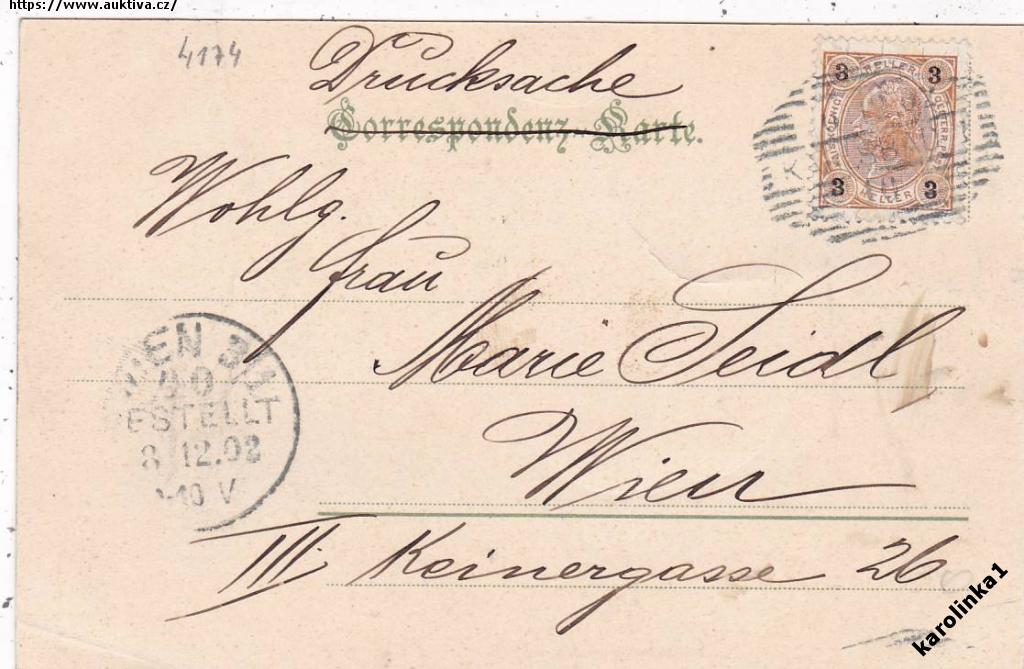 https://www.auktiva.cz/
4174
Drucksache
Correspondenz-Karte.
3 HELLER 3
3 HELLER 3
Wohlg.
Frau
Marie Seidl
Wien
III. Keinergasse 26
WIEN 3/1
BESTELLT
8 12.02
10 V
karolinka1